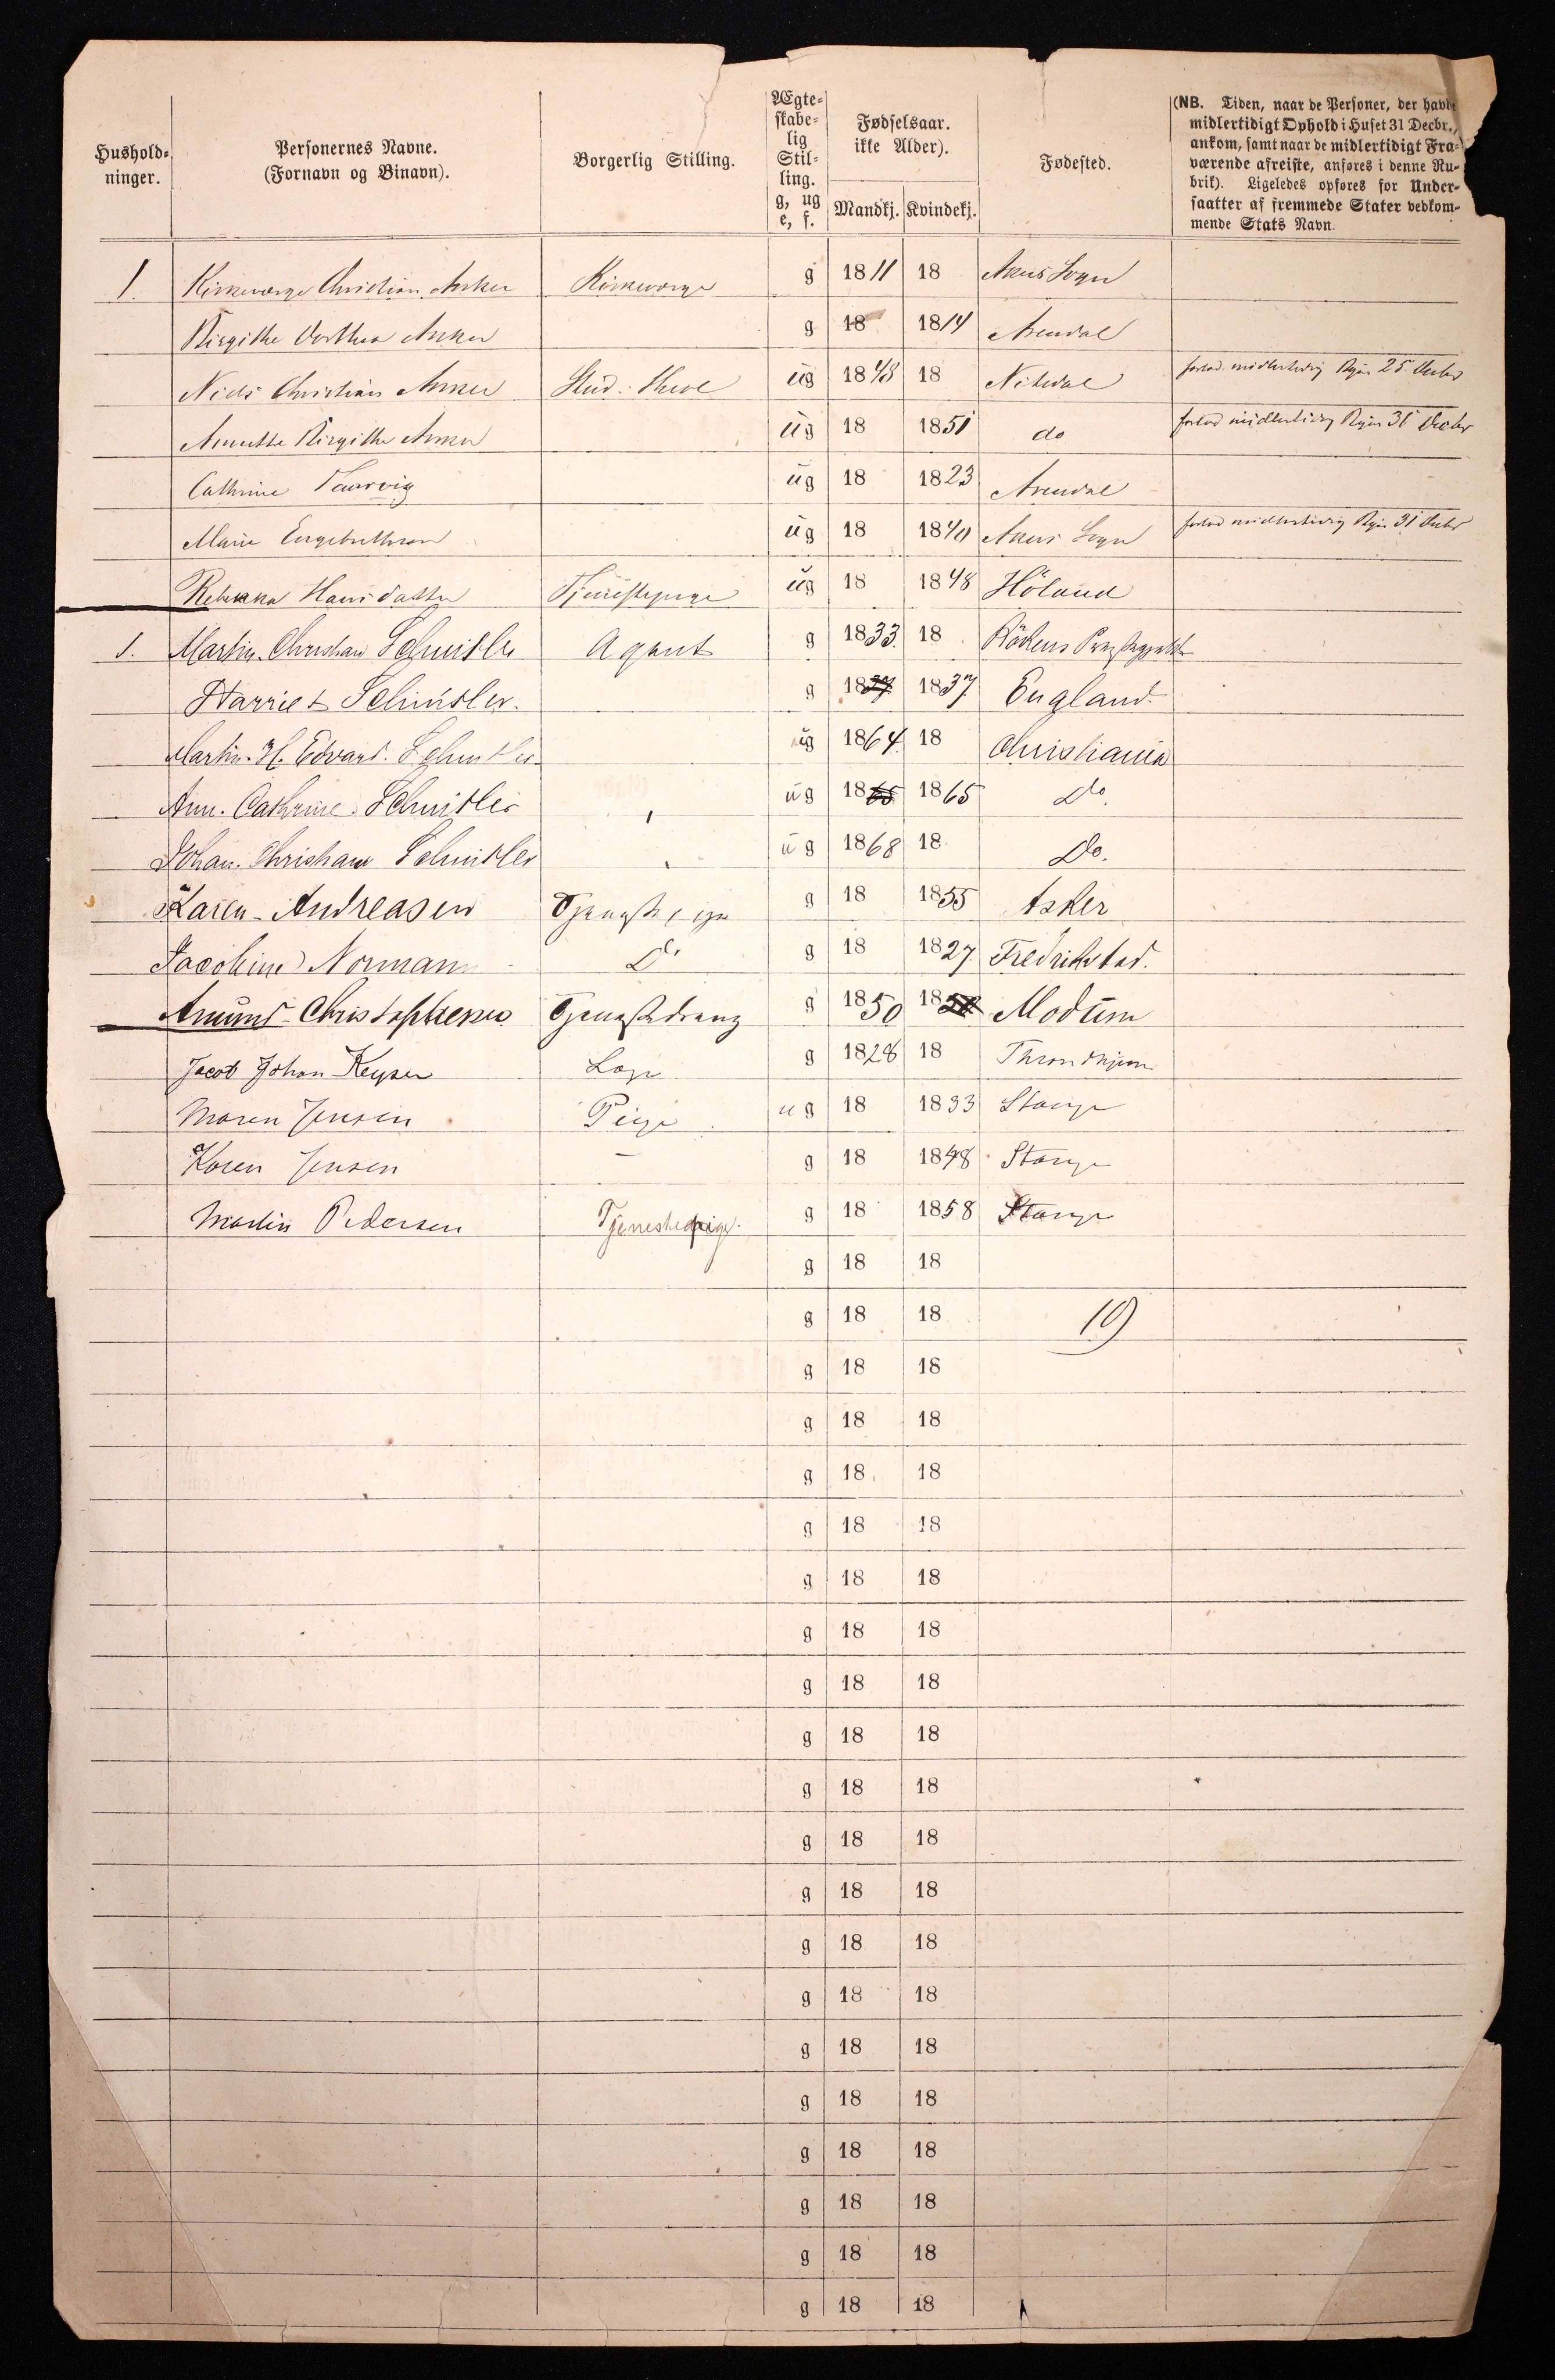 Hushold-
ninger.
Personernes Navne.
(Fornavn og Binavn).
Borgerlig Stilling.
Ægte-
skabe-
lig
Stil-
ling.
g, ug
e, f.
Fødselsaar.
ikke Alder).
Mandkj. Kvindekj.
Fødested.
(NB. Tiden, naar de Personer, der havde
midlertidigt Ophold i Huset 31 Decbr.,
ankom, samt naar de midlertidigt Fra-
værende afreiste, anføres i denne Ru-
brik). Ligeledes opføres for Under-
saatter af fremmede Stater vedkom-
mende Stats Navn.
1. Kirkeværge Christian Anker Kirkeværge g 1811 18 Akers Sogn
Birgithe Dorthea Anker g 18 1814 Arendal
Niels Christian Anker Stud. theol ug 1848 18 Nitedal forlod midlertidig Byen 25 Decbr
Annette Birgithe Anker ug 18 1851 do forlod midlertidig Byen 31 Decbr
Cathrine ug 18 1823 Arendal
Marie Engebrethsen ug 18 1840 Akers Sogn forlod midlertidig Byen 31 Decbr
Rebekka Hansdatter Tjenestepige ug 18 1848 Höland
1. Martin Christian Schnitler Agent g 1833 18 Rökens Præstegjeld
Harriet Schnitler. g 18 1837 England.
Martin. H. Edvard. Schnitler ug 1864 18 Christiania
Ane. Cathrine. Schnitler ug 1865 1865 Do.
Johan. Christian Schnitler ug 1868 18 Do.
Karen Andreasen Tjenestepige g 18 1855 Asker
Jacobine Normann Do g 18 1827 Fredrikstad.
Amund Christophersen Tjenestedreng g 1850 18 Modum
Jacob Johan Keyser Loge g 1828 18 Throndhjem
Maren Jensen Pige ug 18 1833 Stange
Karen Jensen - g 18 1848 Stange
Martin Pedersen Tjenestepige. g 18 1858 Stange
g 18 18
g 18 18 19
g 18 18
g 18 18
g 18 18
g 18 18
g 18 18
g 18 18
g 18 18
g 18 18
g 18 18
g 18 18
g 18 18
g 18 18
g 18 18
g 18 18
g 18 18
g 18 18
g 18 18
g 18 18
g 18 18